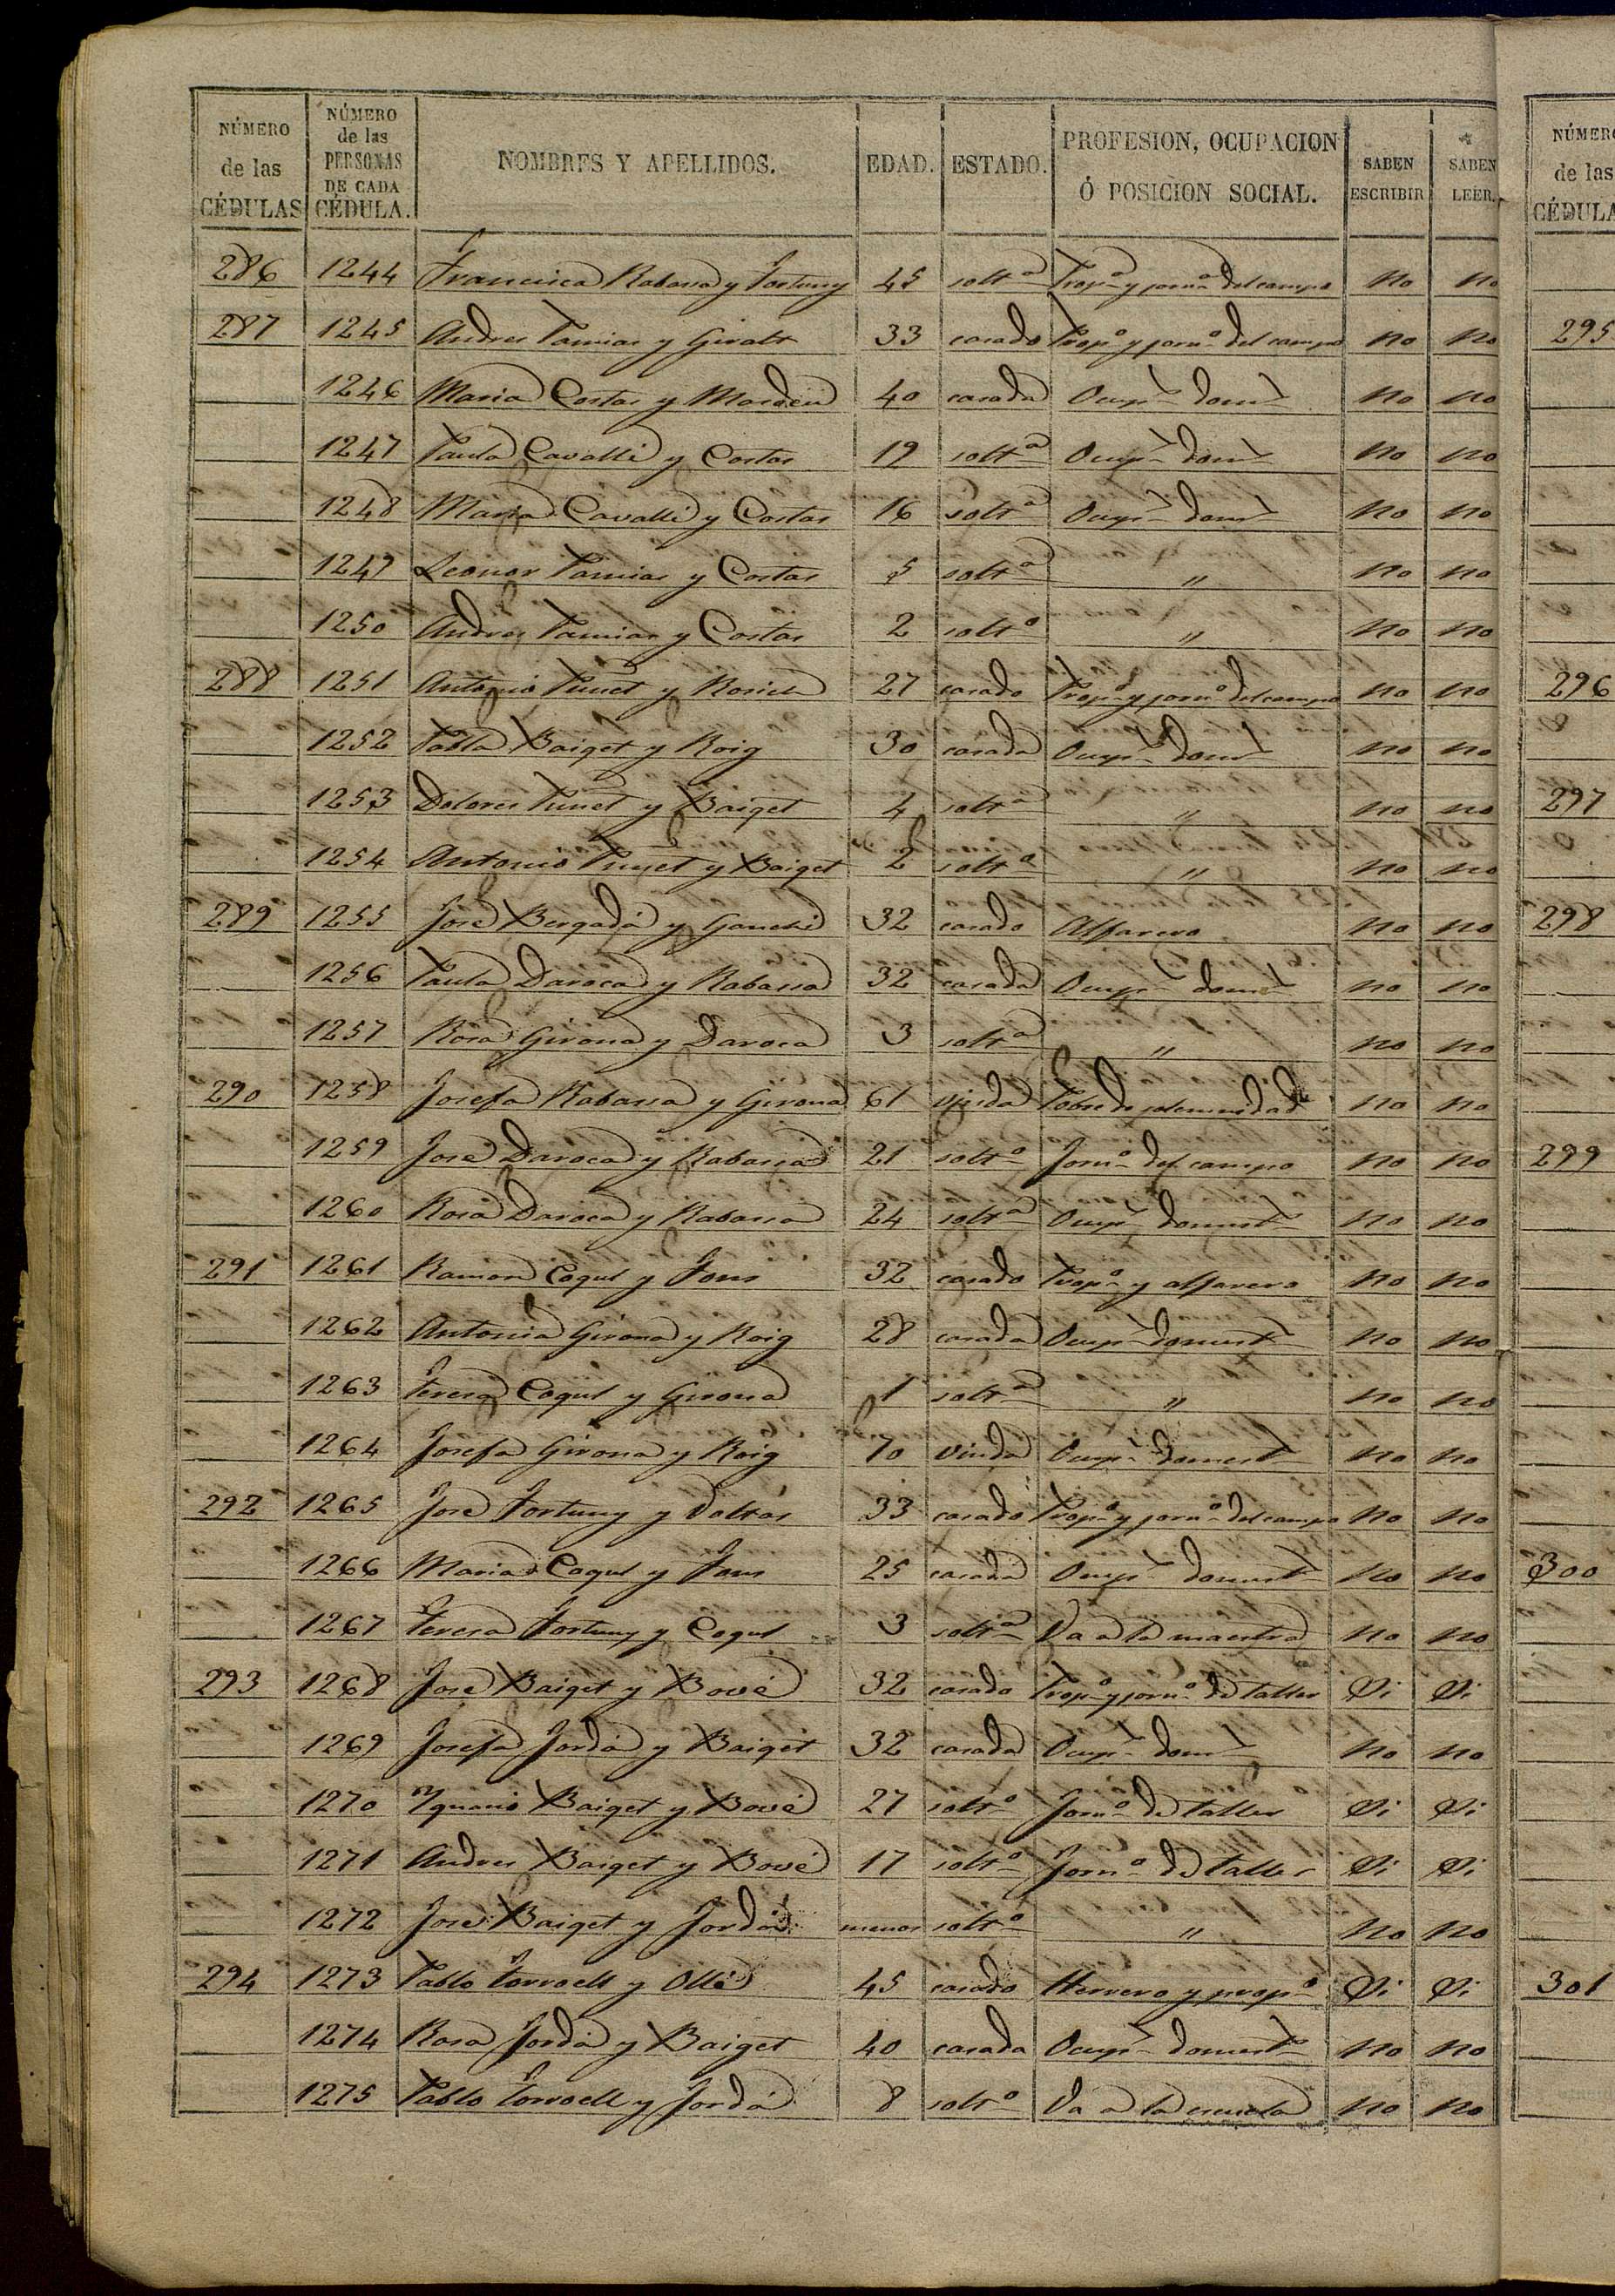 NÚMERO de las CÉDULAS NÚMERO de las PERSONAS DE CADA CÉDULA. NOMBRES Y APELLIDOS. EDAD. ESTADO. PROFESION, OCUPACION Ó POSICION SOCIAL. SABEN ESCRIBIR SABEN LEER.
286 1244 Francisca Rabassa y Fortuny 45 soltª Propª y jornª del campo no no
287 1245 Andres Pamias y Giralt 33 casado Propº y jornº del campo no no
1246 Maria Costas y 40 casada Ocupn domt no no
1247 Paula Cavallé y Costas 19 soltª Ocupn domt no no
1248 Maria Cavallé y Costas 16 soltª Ocupn domt no no
1249 Leonor Pamias y Costas 5 soltª " no no
1250 Andres Pamias y Costas 2 soltº " no no
288 1251 Antonio Punet y Rosich 27 casado Propº y jornº del campo no no
1252 Pabla Baiget y Roig 30 casada Ocupn domt no no
1253 Dolores Punet y Baiget 4 soltª " no no
1254 Antonio Punet y Baiget 2 soltº " no no
289 1255 José Bergadá y 32 casado Alfarero no no
1256 Paula Daroca y Rabassa 32 casada Ocupn domt no no
1257 Rosa Girona y Daroca 3 soltª " no no
290 1258 Josefa Rabassa y Girona 61 viuda Pobre de solemnidad no no
1259 José Daroca y Rabassa 21 soltº Jornº del campo no no
1260 Rosa Daroca y Rabassa 24 soltª Ocupn domest no no
291 1261 Ramon Coqul y Fons 32 casado Propº y alfarero no no
1262 Antonia Girona y Roig 28 casada Ocupn domest no no
1263 Teresa Coqul y Girona 1 soltª " no no
1264 Josefa Girona y Roig 70 viuda Ocupn domest no no
292 1265 José Fortuny y Voltas 33 casado Propº y jornº del campo no no
1266 Maria Coqul y Fons 25 casada Ocupn domest no no
1267 Teresa Fortuny y Coqul 3 soltª Va a la maestra no no
293 1268 José Baiget y Bové 32 casado Propº y jornº de taller Si Si
1269 Josefa Jordá y Baiget 32 casada Ocupn domt no no
1270 Ygnacio Baiget y Bové 27 soltº Jornº de taller Si Si
1271 Andres Baiget y Bové 17 soltº Jornº de taller Si Si
1272 José Baiget y Jordá menor soltº " no no
294 1273 Pablo Torroell y Ollé 45 casado Herrero y propº Si Si
1274 Rosa Jordá y Baiget 40 casada Ocupn domest no no
1275 Pablo Torroell y Jordá 8 soltº Va a la escuela no no
NÚMERO de las CÉDULA
295
296
297
298
299
300
301